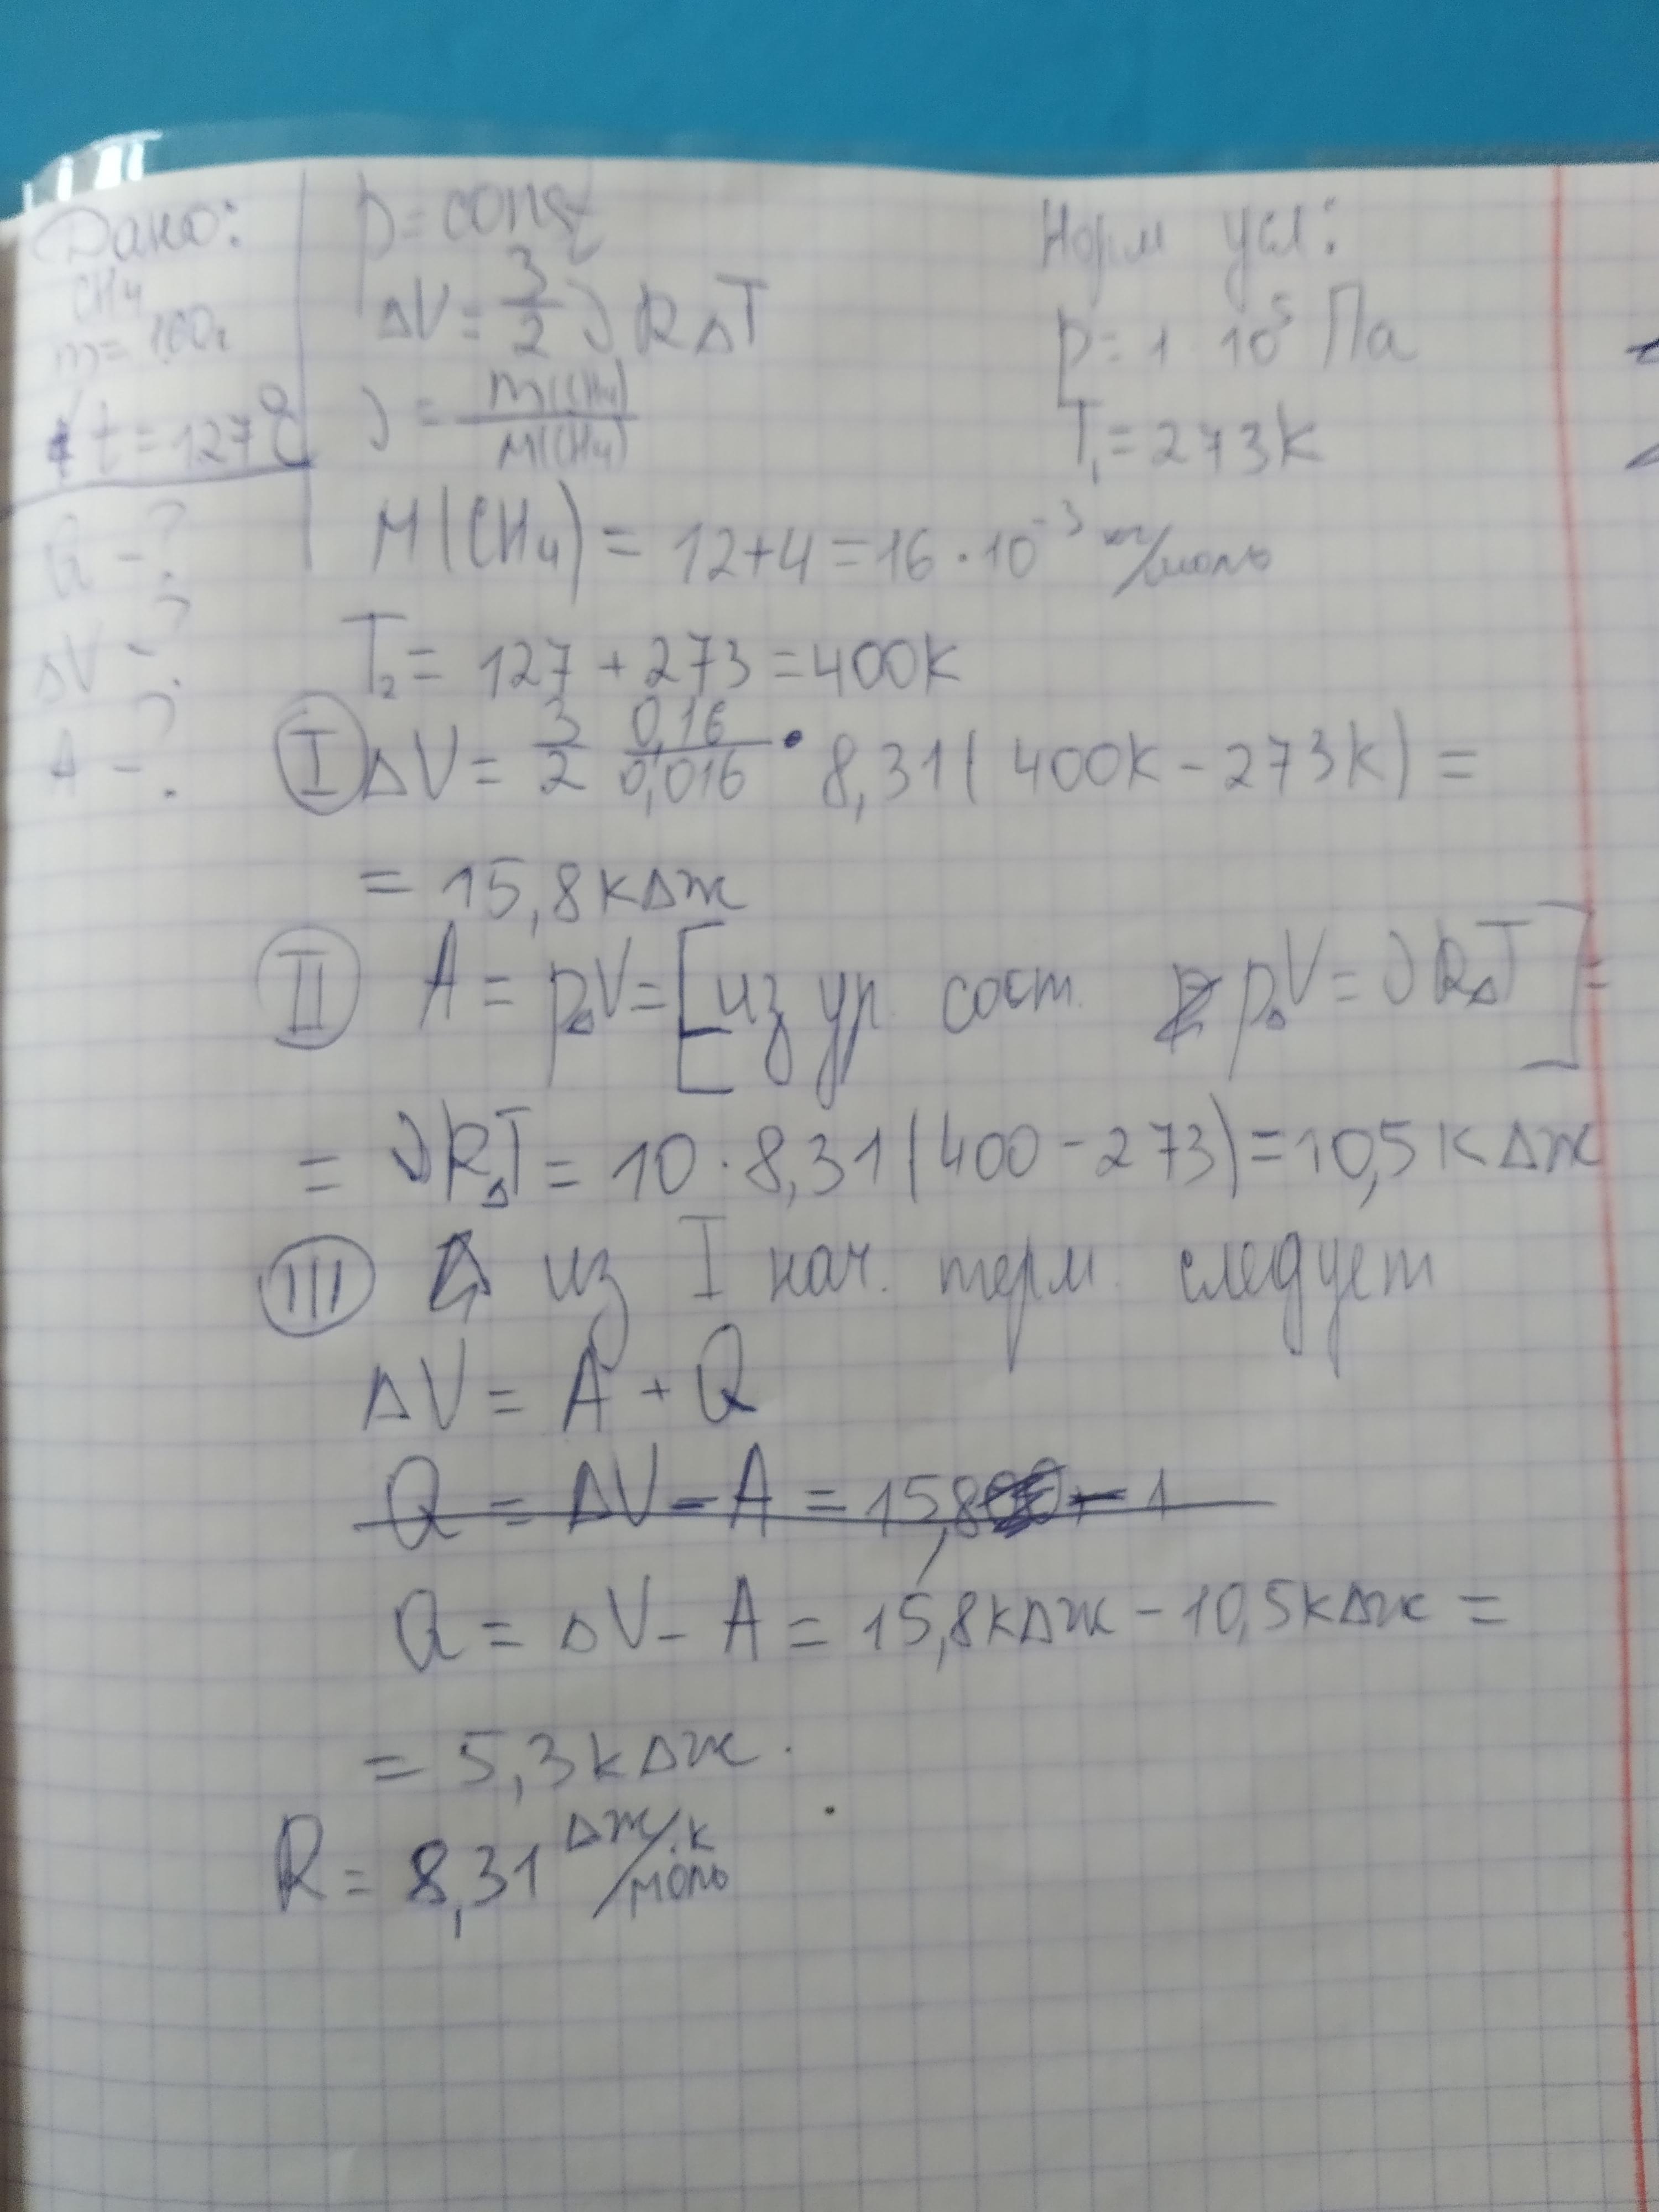 Дано:
CH4
m = 160г
t = 127°C
Q - ?
ΔV - ?
A - ?
p = const
ΔV = 3/2 ν R ΔT
ν = m(CH4)/M(CH4)
Норм усл:
p = 1 10⁵ Па
T₁ = 273K
M(CH₄) = 12+4 = 16 · 10⁻³ кг/моль
T₂ = 127 + 273 = 400K
I ΔV = 3/2 0,16/0,016 · 8,31( 400K - 273K) =
= 15,8 кДж
II A = pΔV = [из ур. сост. pΔV = νRΔT] =
= νRΔT = 10 · 8,31(400 - 273) = 10,5 кДж
III из I нач. терм. следует
ΔV = A + Q
Q = ΔV - A = 15,8 - 1
Q = ΔV - A = 15,8кДж - 10,5кДж =
= 5,3кДж.
R = 8,31 Дж/моль · к